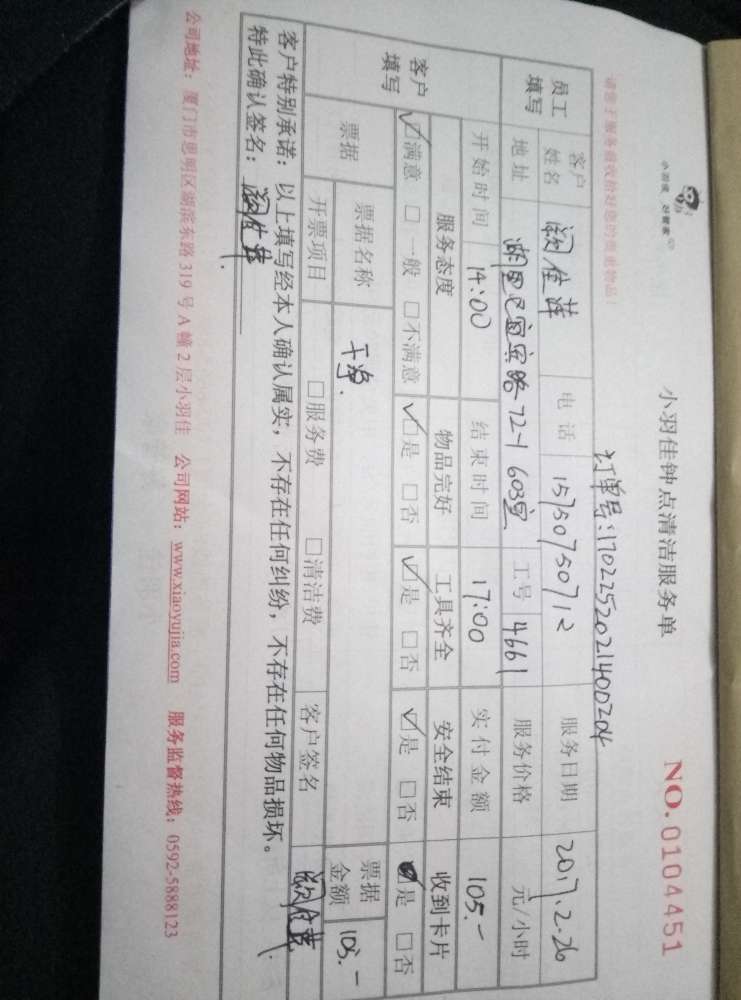 小羽佳 好管家
小羽佳钟点清洁服务单
NO.0104451
请您于服务前收拾好您的贵重物品!
订单号:1702252021400204
员工填写 客户姓名 阙佳萍 电话 15750750712 服务日期 2017.2.26
地址 湖里区宜宾路72-1 603室 工号 4661 服务价格 元/小时
开始时间 14:00 结束时间 17:00 实付金额 105.-
客户填写 服务态度 物品完好 工具齐全 安全结束 收到卡片
☑满意 □一般 □不满意 ☑是 □否 ☑是 □否 ☑是 □否 ☑是 □否
票据 票据名称 干净. 票据金额 105.-
开票项目 □服务费 □清洁费 客户签名
客户特别承诺:以上填写经本人确认属实,不存在任何纠纷,不存在任何物品损坏。
特此确认签名:
公司地址:厦门市思明区湖滨东路319号A幢2层小羽佳 公司网站:www.xiaoyujia.com 服务监督热线:0592-5888123